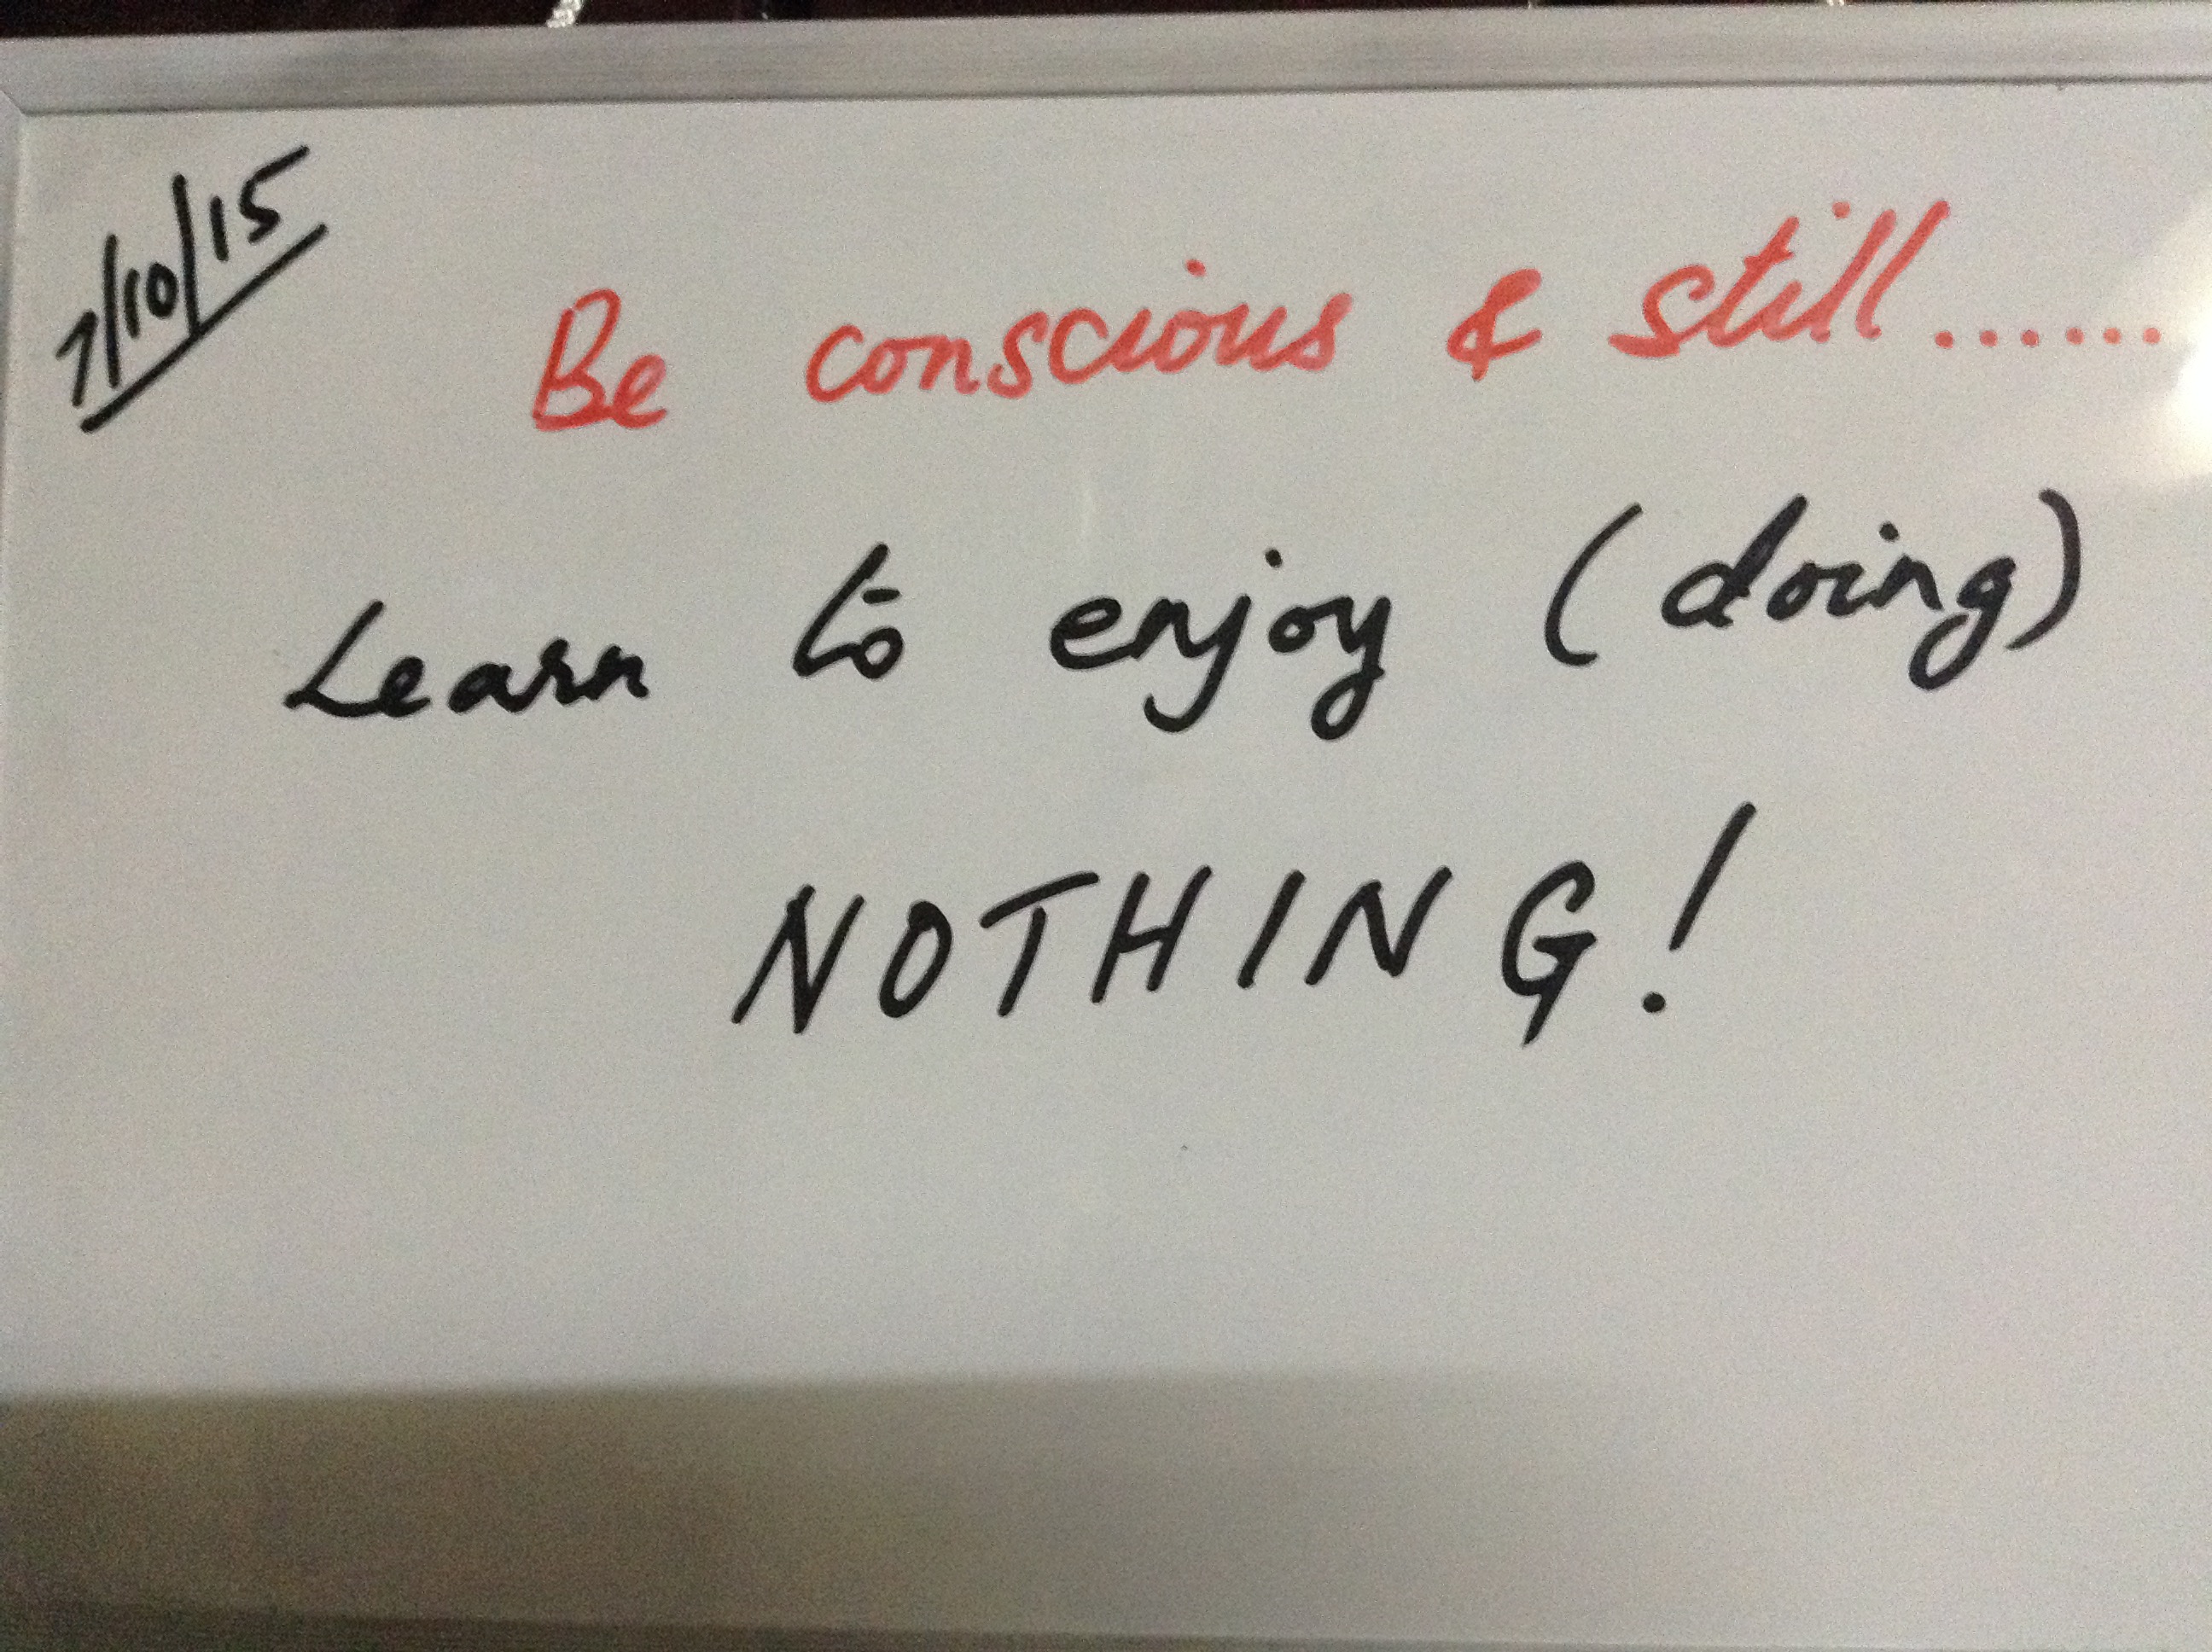 7/10/15
Be conscious & still......
Learn to enjoy (doing)
NOTHING!